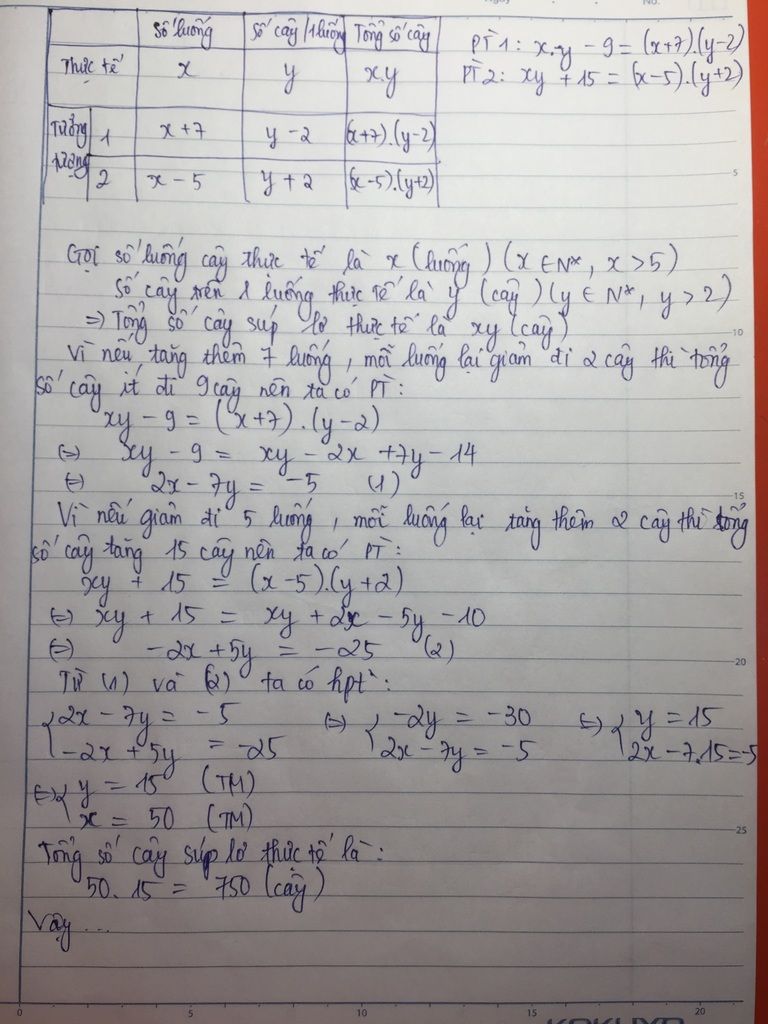 Số luống Số cây /1 luống Tổng số cây
Thực tế x y x.y
Tưởng tượng 1 x + 7 y - 2 (x+7).(y-2)
2 x - 5 y + 2 (x-5).(y+2)
PT1: x.y - 9 = (x+7).(y-2)
PT2: xy + 15 = (x-5).(y+2)
Gọi số luống cây thực tế là x (luống) (x ∈ N*, x > 5)
Số cây trên 1 luống thực tế là y (cây) (y ∈ N*, y > 2)
=> Tổng số cây súp lơ thực tế là xy (cây)
Vì nếu tăng thêm 7 luống, mỗi luống lại giảm đi 2 cây thì tổng
số cây ít đi 9 cây nên ta có PT:
xy - 9 = (x+7).(y-2)
(=) xy - 9 = xy - 2x + 7y - 14
(=) 2x - 7y = -5 (1)
Vì nếu giảm đi 5 luống, mỗi luống lại tăng thêm 2 cây thì tổng
số cây tăng 15 cây nên ta có PT:
xy + 15 = (x-5).(y+2)
(=) xy + 15 = xy + 2x - 5y - 10
(=) -2x + 5y = -25 (2)
Từ (1) và (2) ta có hpt:
{2x - 7y = -5 (=) {-2y = -30 (=) {y = 15
-2x + 5y = -25 2x - 7y = -5 2x - 7.15 = -5
(=) {y = 15 (TM)
x = 50 (TM)
Tổng số cây súp lơ thực tế là:
50. 15 = 750 (cây)
Vậy ...
5
10
15
20
25
0 5 10 15 20
KOKUYO
No.